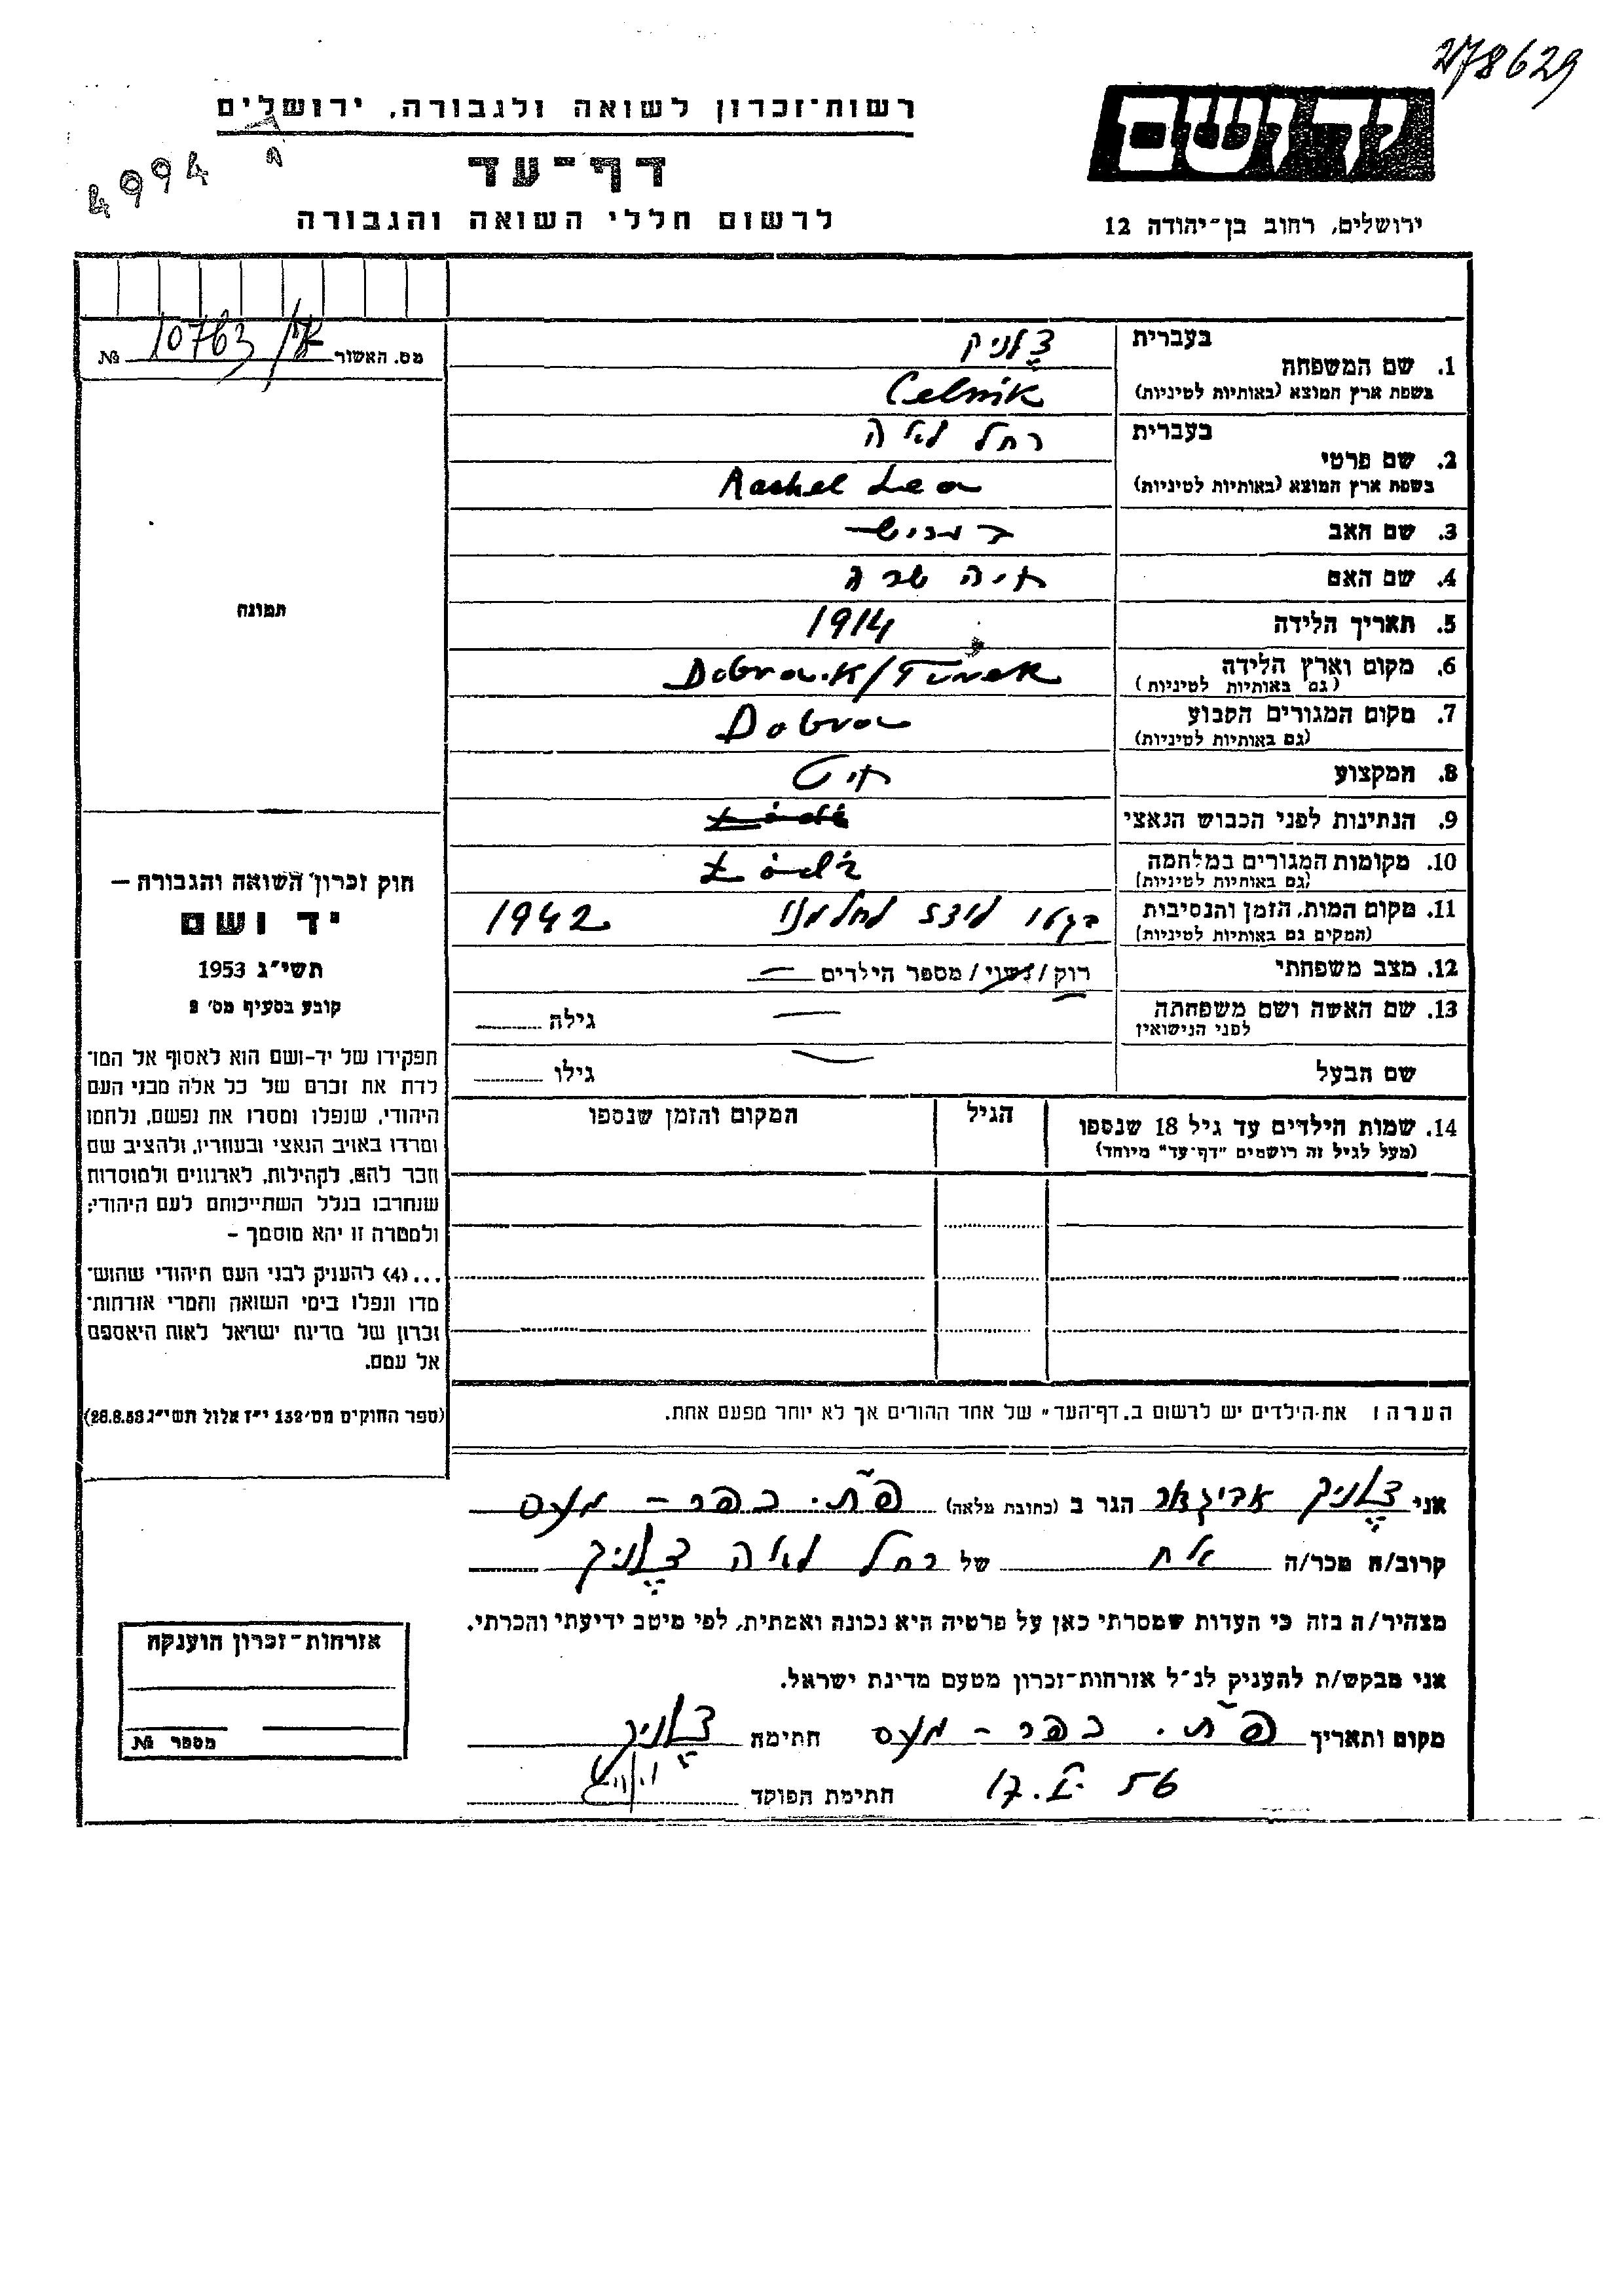 278629
רשות־זכרון לשואה ולגבורה, ירושלים
ידושם
4994
דף־עד
לרשום חללי השואה והגבורה
ירושלים, רחוב בן־יהודה 12
מס. האשור 10763/ №
בעברית צלניק
1. שם המשפחה
בשפת ארץ המוצא (באותיות לטיניות) Celnik
בעברית רחל לאה
2. שם פרטי
בשפת ארץ המוצא (באותיות לטיניות) Rachel Lea
3. שם האב
4. שם האם חיה
תמונה
5. תאריך הלידה 1914
6. מקום וארץ הלידה Dobra.K/Turek
(גם באותיות לטיניות)
7. מקום המגורים הקבוע Dobra
(גם באותיות לטיניות)
8. המקצוע חיט
9. הנתינות לפני הכבוש הנאצי Łódź
10. מקומות המגורים במלחמה Łódź
(גם באותיות לטיניות)
11. מקום המות, הזמן והנסיבות בגטו לודז לחלמנו 1942
(המקום גם באותיות לטיניות)
12. מצב משפחתי רוק/נשוי/מספר הילדים —
13. שם האשה ושם משפחתה — גילה
לפני הנישואין
שם הבעל — גילו
14. שמות הילדים עד גיל 18 שנספו הגיל המקום והזמן שנספו
(מעל לגיל זה רושמים "דף־עד" מיוחד)
חוק זכרון השואה והגבורה —
יד ושם
תשי״ג 1953
קובע בסעיף מס׳ 2
תפקידו של יד-ושם הוא לאסוף אל המו־
לדת את זכרם של כל אלה מבני העם
היהודי, שנפלו ומסרו את נפשם, נלחמו
ומרדו באויב הנאצי ובעוזריו, ולהציב שם
וזכר להם, לקהילות, לארגונים ולמוסדות
שנחרבו בגלל השתייכותם לעם היהודי;
ולמטרה זו יהא מוסמך –
...(4) להעניק לבני העם היהודי שהוש־
מדו ונפלו בימי השואה והמרי אזרחות־
זכרון של מדינת ישראל לאות היאספם
אל עמם.
(ספר החוקים מס׳ 132 י״ז אלול תשי״ג 28.8.53)
הערה: את-הילדים יש לרשום ב„דף-העד" של אחד ההורים אך לא יותר מפעם אחת.
אני צלניק אביגדור הגר ב (כתובת מלאה) פ״ת. כפר – מעס
קרוב/ה מכר/ה אח של רחל לאה צלניק
מצהיר/ה בזה כי העדות שמסרתי כאן על פרטיה היא נכונה ואמתית, לפי מיטב ידיעתי והכרתי.
אני מבקש/ת להעניק לנ״ל אזרחות-זכרון מטעם מדינת ישראל.
מקום ותאריך פ״ת. כפר – מעס חתימה צלניק
17.X. 56 חתימת הפוקד
אזרחות-זכרון הוענקה
מספר №